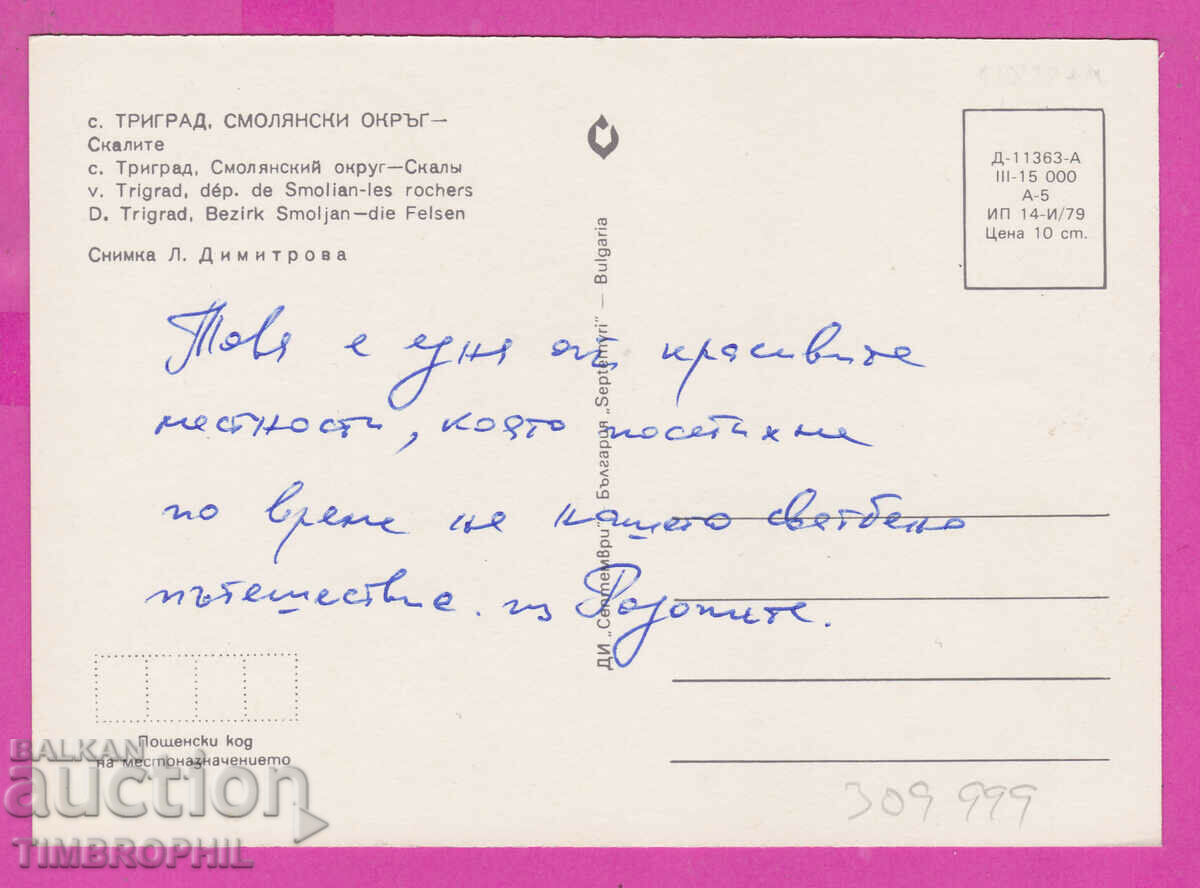 с. ТРИГРАД, СМОЛЯНСКИ ОКРЪГ—
Скалите
с. Триград, Смолянский округ—Скалы
v. Trigrad, dép. de Smolian-les rochers
D. Trigrad, Bezirk Smoljan—die Felsen
Снимка Л. Димитрова
Д-11363-А
III-15 000
А-5
ИП 14-И/79
Цена 10 ст.
ДИ „Септември“ България „Septemvri“ — Bulgaria
Това е една от красивите
местности, която посетихме
по време на нашето сватбено
пътешествие из Родопите.
Пощенски код
на местоназначението
309 999
BALKAN
auction
TIMBROPHIL